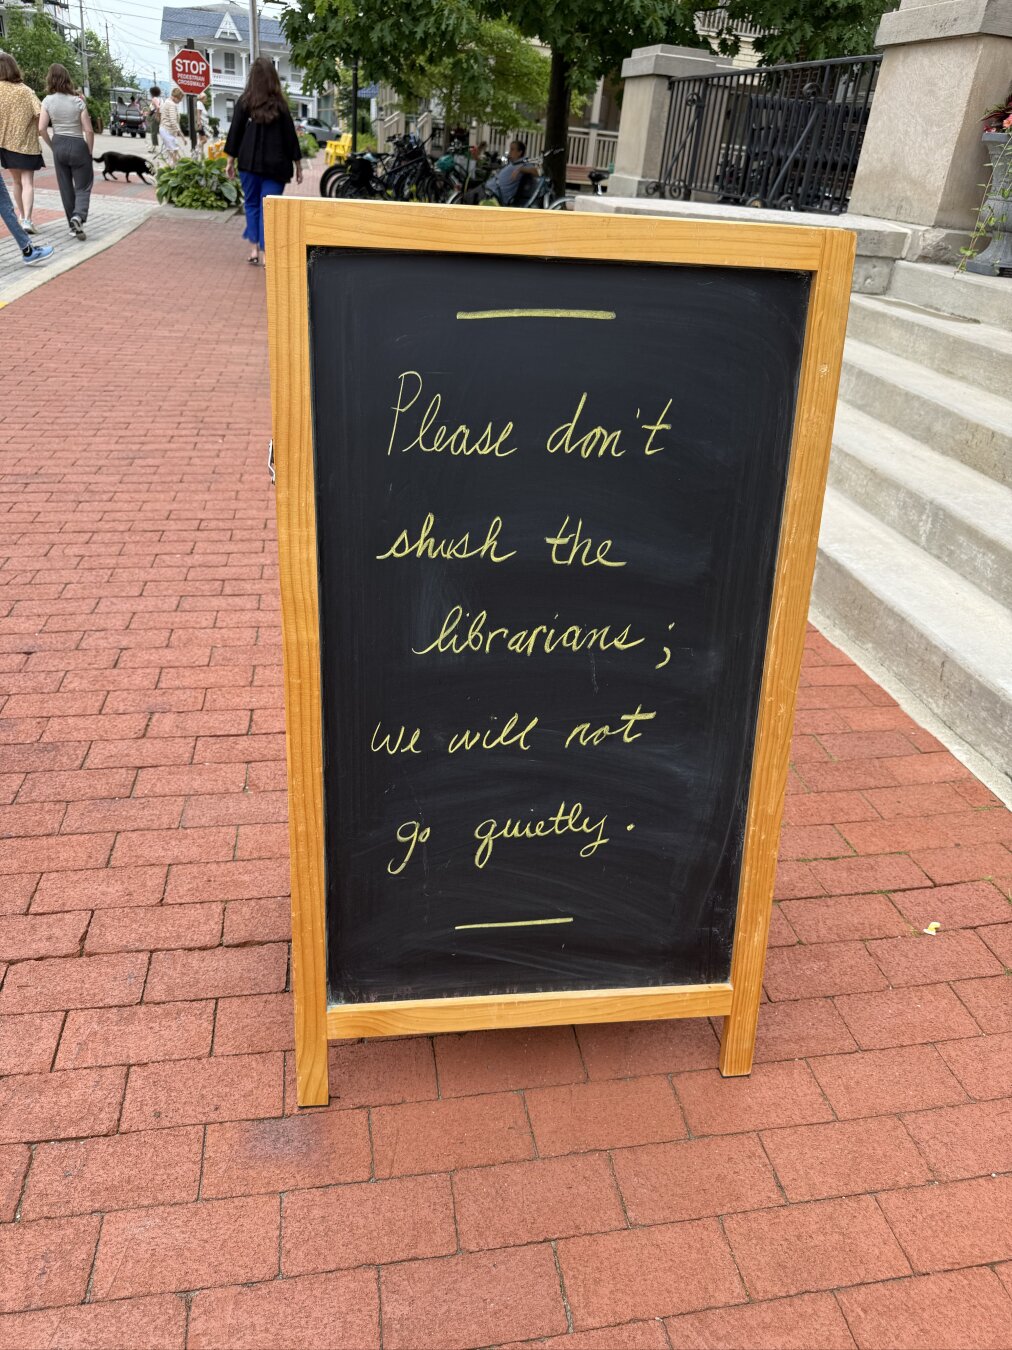 STOP
PEDESTRIAN
CROSSWALK
Please don't
shush the
librarians;
we will not
go quietly.